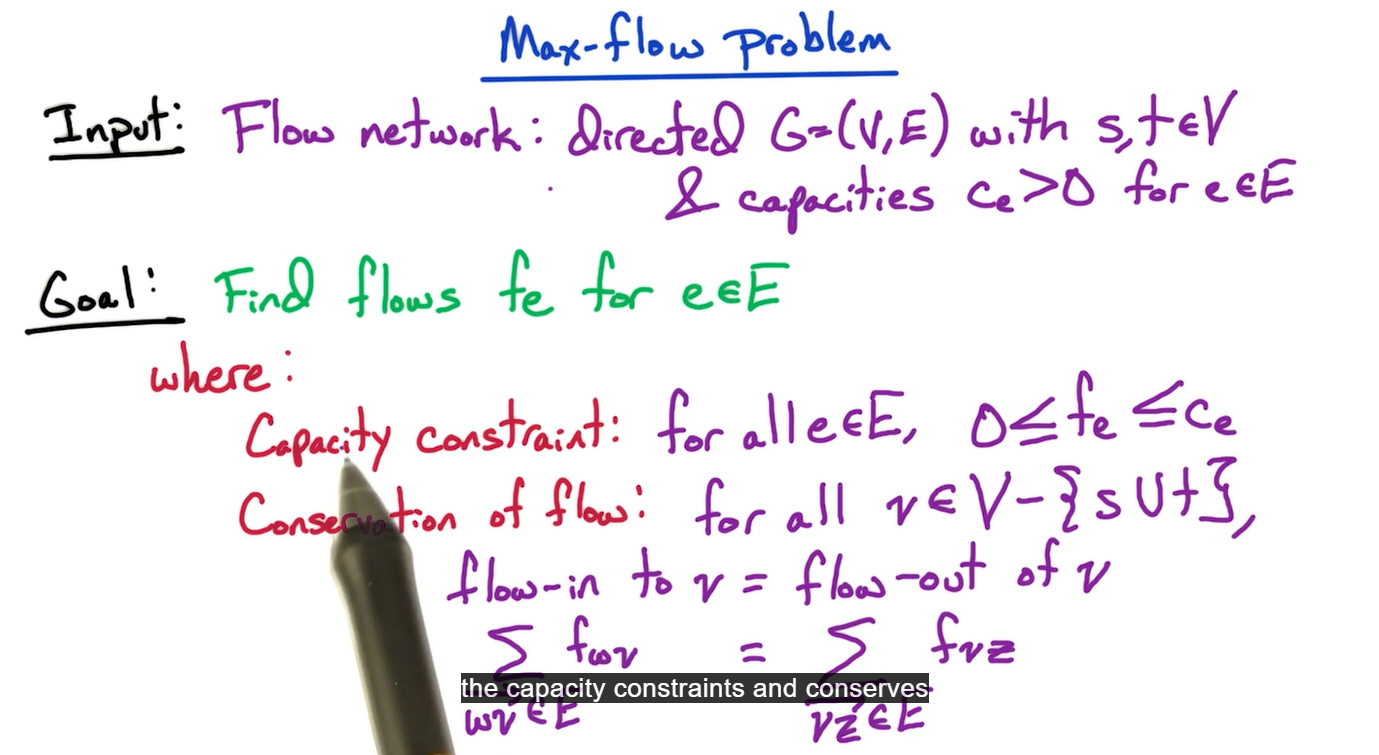 Max-flow problem
Input: Flow network: directed G=(V,E) with s,t∈V
& capacities ce>0 for e∈E
Goal: Find flows fe for e∈E
where:
Capacity constraint: for all e∈E, 0≤fe≤ce
Conservation of flow: for all v∈V-{s∪t},
flow-in to v = flow-out of v
∑ fwv = ∑ fvz
the capacity constraints and conserves
wv∈E vz∈E